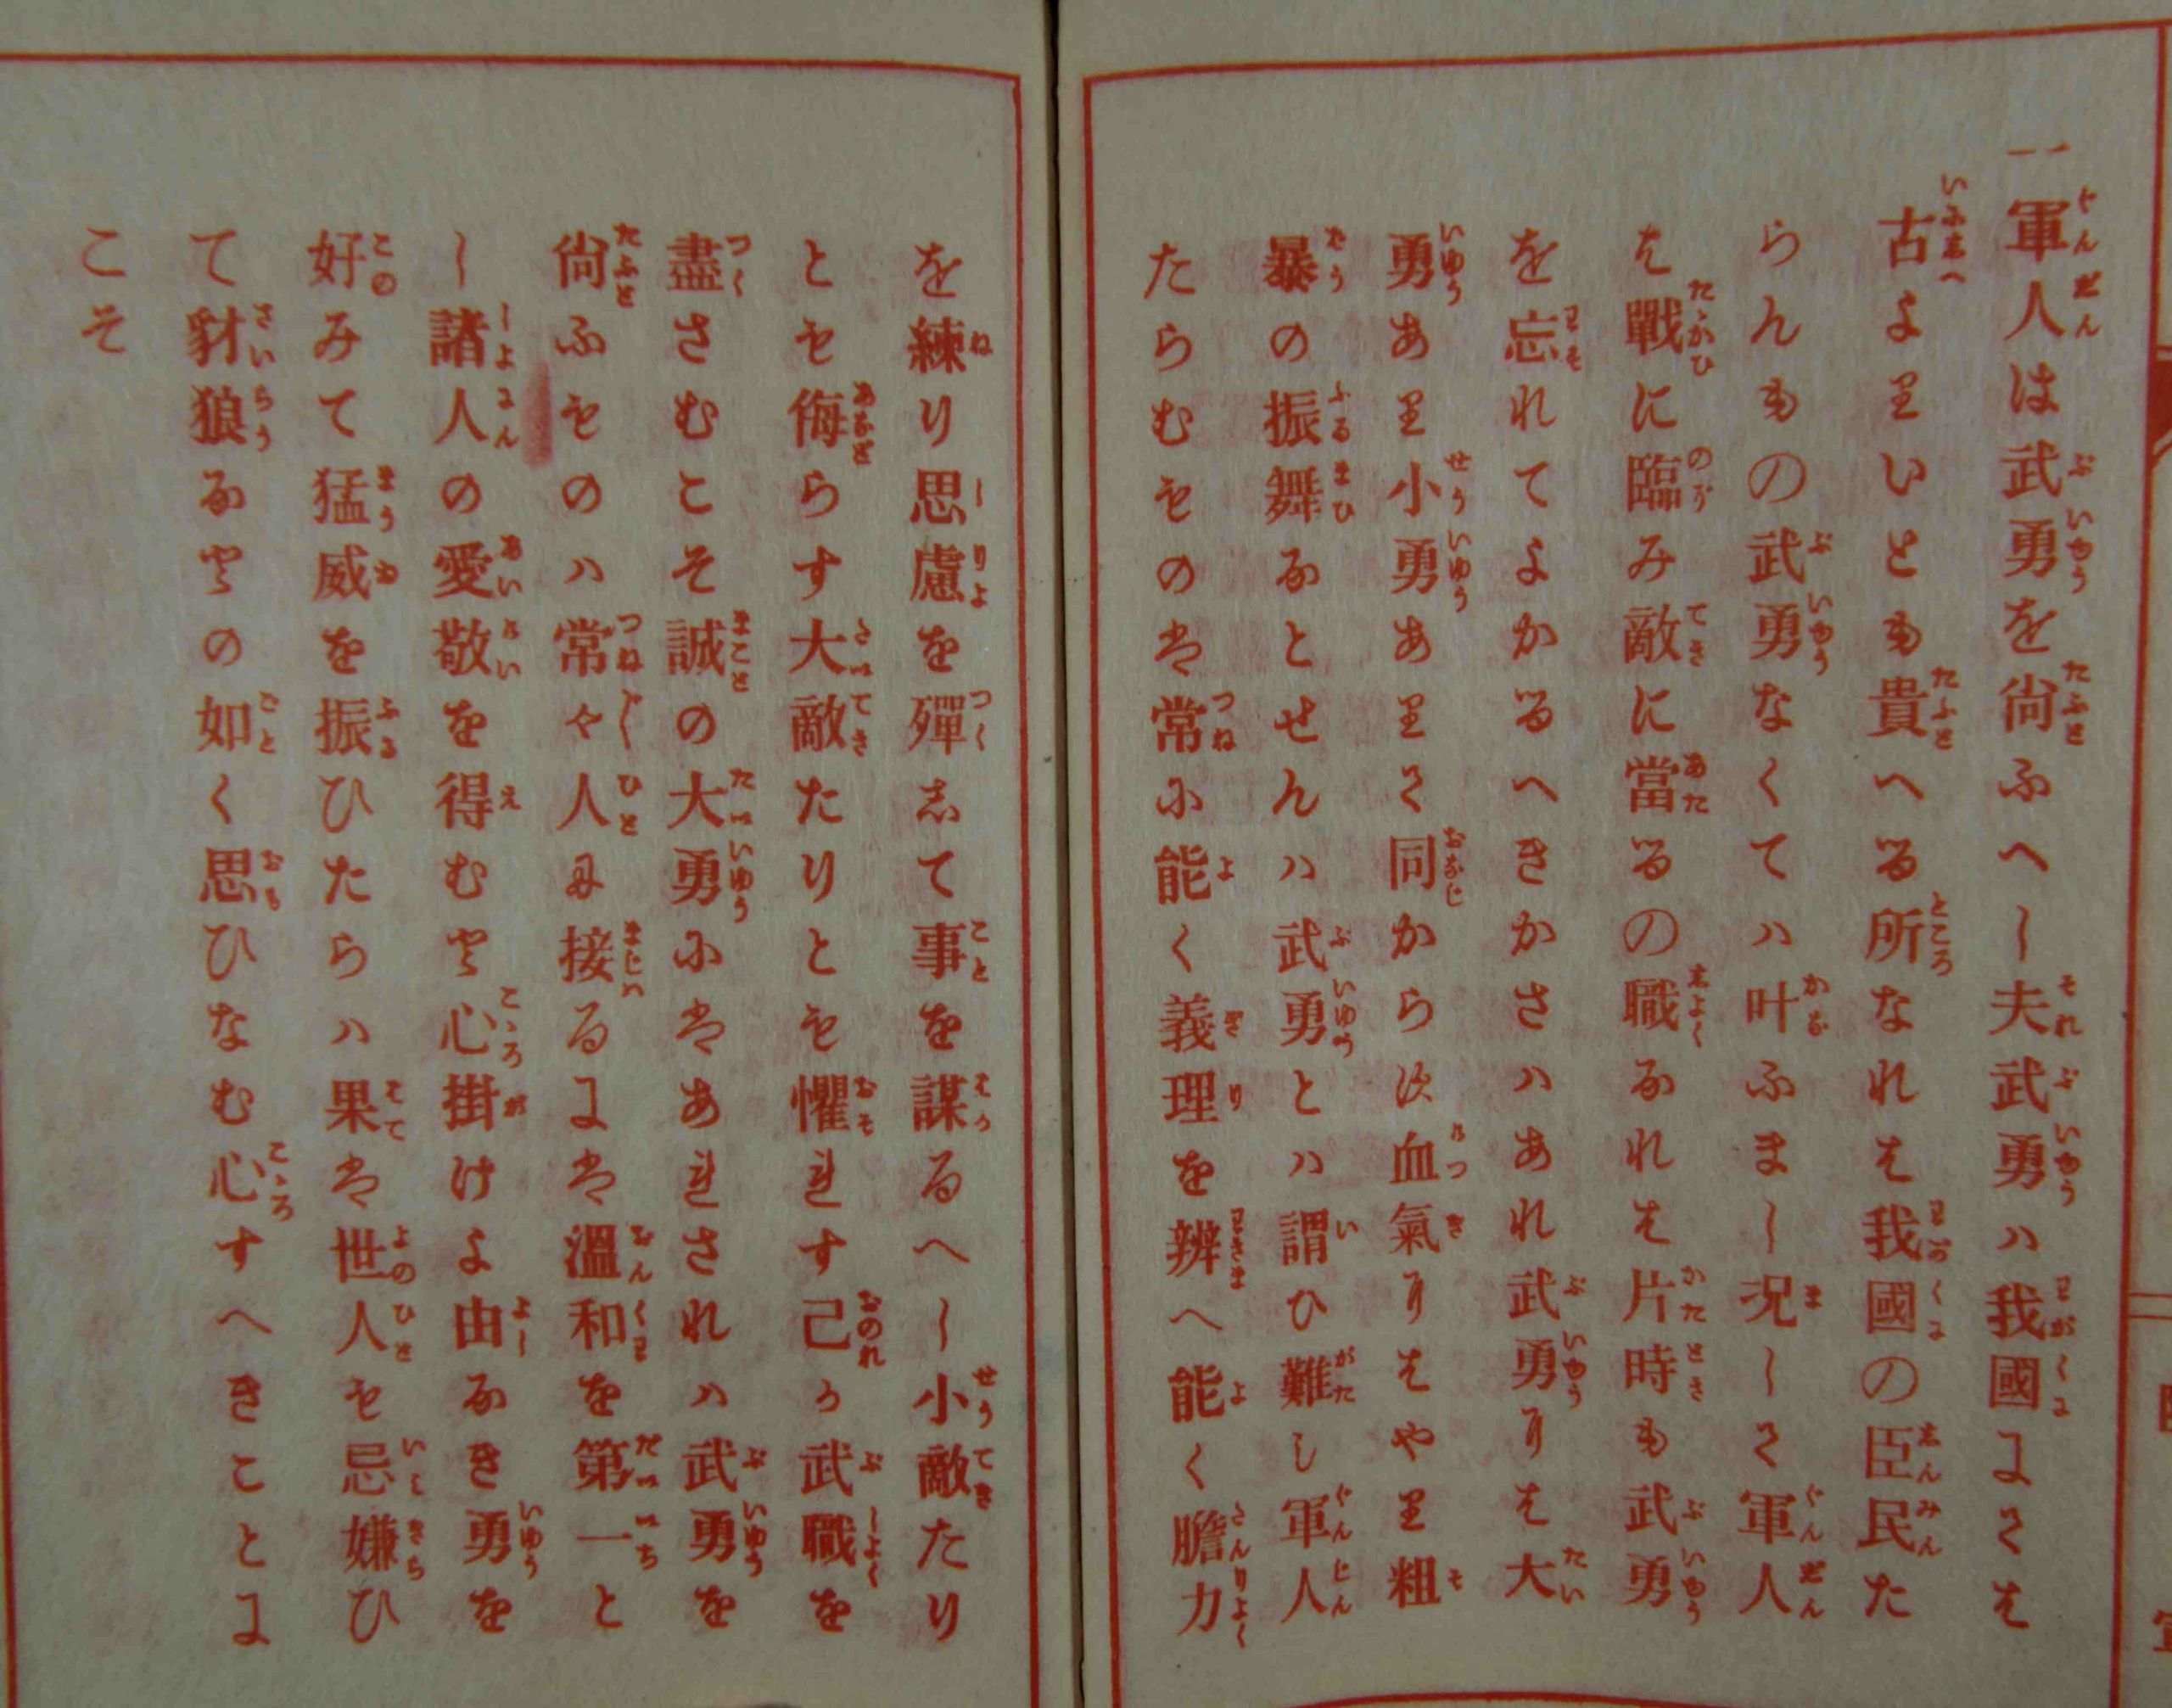 一軍人は武勇を尙ふへし夫武勇ハ我國にてハ
古よりいとも貴へる所なれハ我國の臣民た
らんもの武勇なくてハ叶ふまし况して軍人
ハ戰に臨み敵に當るの職なれハ片時も武勇
を忘れてよかるへきかさハあれ武勇にハ大
勇あり小勇ありて同からす血氣にハやり粗
暴の振舞なとせんハ武勇とハ謂ひ難し軍人
たらむものハ常に能く義理を辨へ能く膽力
を練り思慮を殫して事を謀るへし小敵たり
とも侮らす大敵たりとも懼れす己か武職を
盡さむこそ誠の大勇にハあれされハ武勇を
尙ふものハ常々人に接るにハ溫和を第一と
し諸人の愛敬を得むと心掛けよ由なき勇を
好みて猛威を振ひたらハ果ハ世人も忌嫌ひ
て豺狼なとの如く思ひなむ心すへきことに
こそ